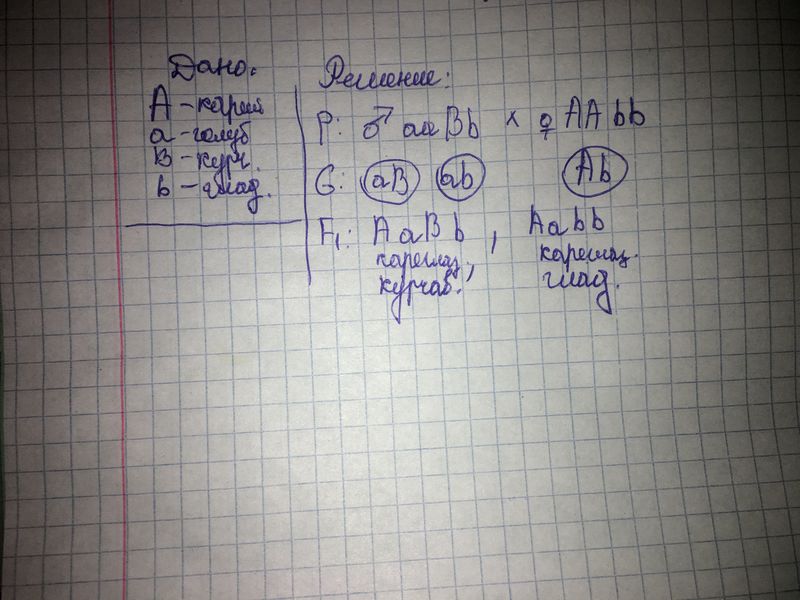 Дано:
А - карий
а - голуб
В - курч.
b - глад.
Решение:
P: ♂ aaBb × ♀ AAbb
G: aB ab Ab
F₁: AaBb, Aabb
кареглаз., кареглаз.
курчав. глад.